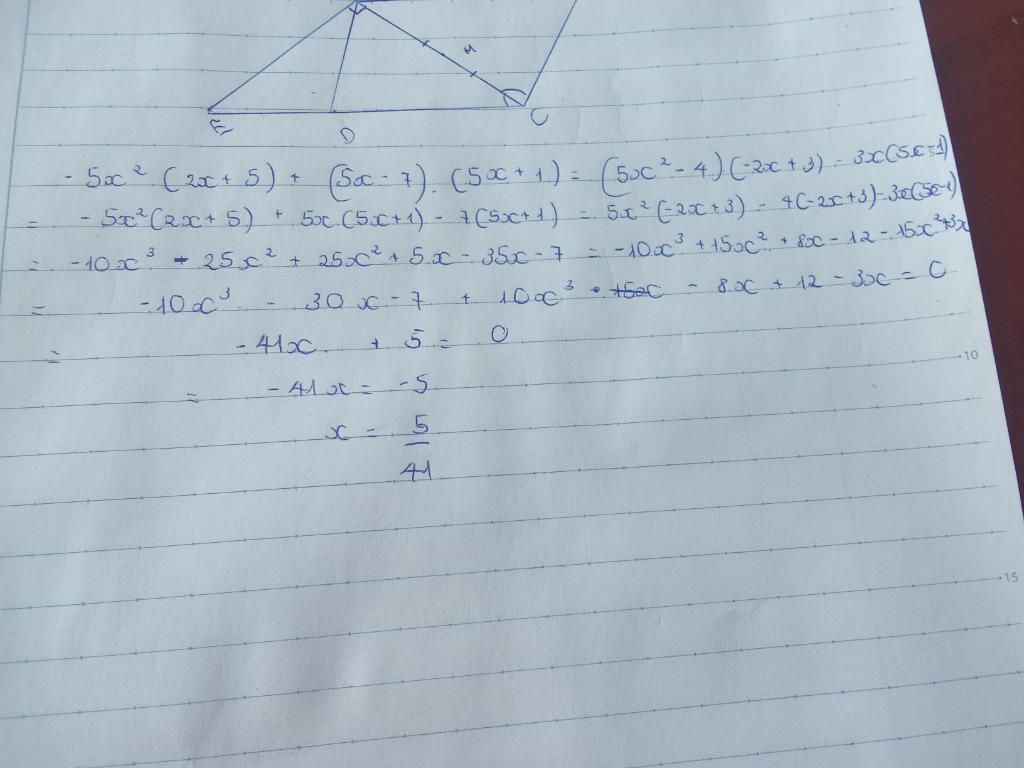 M
E D C
- 5x² (2x + 5) + (5x - 7). (5x + 1) = (5x² - 4)(-2x + 3) - 3x(5x-1)
= - 5x²(2x + 5) + 5x.(5x+1) - 7(5x+1) = 5x²(-2x+3) - 4(-2x+3)-3x(5x-1)
= -10x³ - 25x² + 25x² + 5x - 35x - 7 = -10x³ + 15x² + 8x - 12 - 15x²+3x
= -10x³ - 30x - 7 + 10x³ - 8x + 12 - 3x = 0
= -41x + 5 = 0
= -41x = -5
x = 5/41
10
15